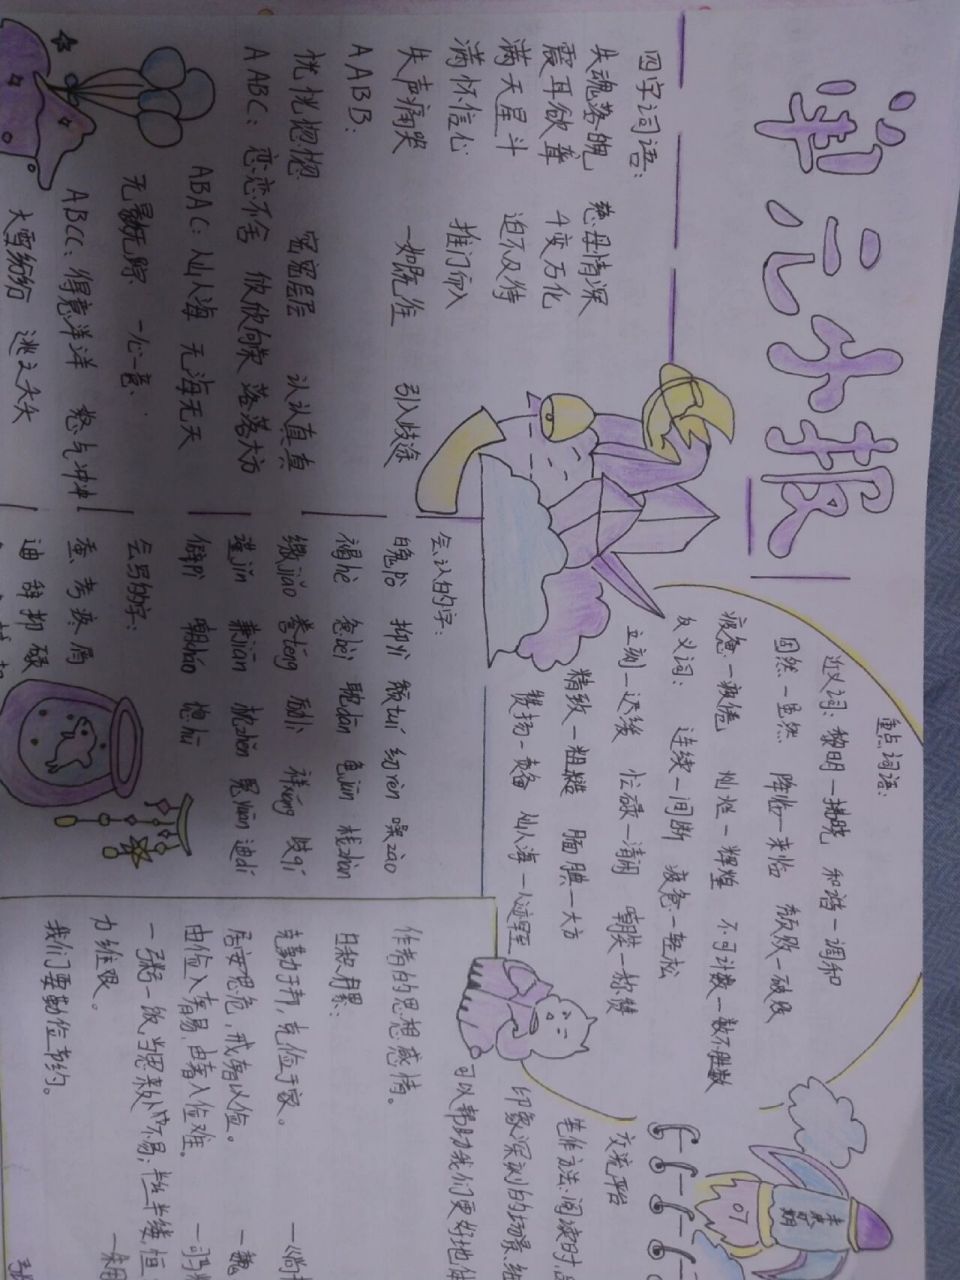 单元小报
四字词语：
失魂落魄 慈母情深
震耳欲聋 千变万化
满天星斗 迫不及待
满怀信心 推门而入
失声痛哭 一如既往 引入歧途
AABB：
恍恍惚惚 密密层层 认认真真
AABC：恋恋不舍 欣欣向荣 落落大方
ABAC：人山人海 无海无天
无影无踪 一心一意
ABCC：得意洋洋 怒气冲冲
大雪纷纷
重点词语：
近义词：黎明—拂晓 和谐—调和
固然—虽然 降临—来临 颓败—破败
疲惫—疲倦 灿烂—辉煌 不可计数—数不胜数
反义词： 连续—间断 疲惫—轻松
立刻—迟缓 忙碌—清闲 嘲笑—称赞
精致—粗糙 腼腆—大方
赞扬—责备 人山人海—人迹罕至
会认的字：
魄pò 抑yì 颓tuí 纫rèn 噪zào
褐hè 惫bèi 耽dān 龟jūn 栈zhàn
缴jiǎo 誊téng 励lì 祥xiáng 歧qí
谨jǐn 兼jiān 枕zhěn 冤yuān 迪dí
僻pì 嘲cháo
会写的字：
考 疾 屑
迪 辞 抑 碌
交流平台
先作方法：阅读时，
印象深刻的场景、细
可以帮助我们更好地体
作者的思想感情。
日积月累：
克勤于邦，克俭于家。 —《尚
居安思危，戒奢以俭。 —魏
由俭入奢易，由奢入俭难。 —司马
一粥一饭，当思来处不易；半丝半缕，恒
力维艰。 —朱用
我们要勤俭节约。
未来可期
07